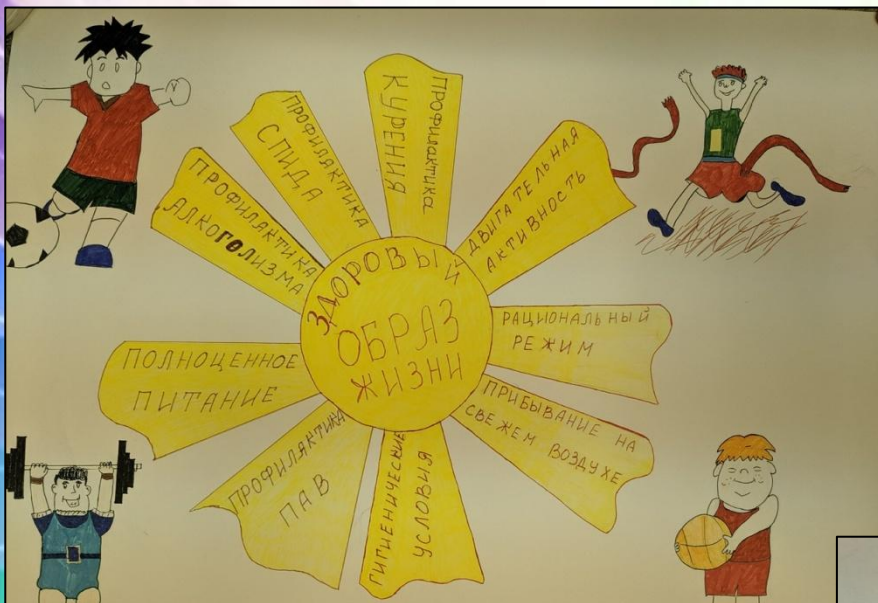 ЗДОРОВЫЙ
ОБРАЗ
ЖИЗНИ
ПРОФИЛАКТИКА
КУРЕНИЯ
ДВИГАТЕЛЬНАЯ
АКТИВНОСТЬ
РАЦИОНАЛЬНЫЙ
РЕЖИМ
ПРИБЫВАНИЕ НА
СВЕЖЕМ ВОЗДУХЕ
ГИГИЕНИЧЕСКИЕ
УСЛОВИЯ
ПРОФИЛАКТИКА
ПАВ
ПОЛНОЦЕННОЕ
ПИТАНИЕ
ПРОФИЛАКТИКА
АЛКОГОЛИЗМА
ПРОФИЛАКТИКА
СПИДА